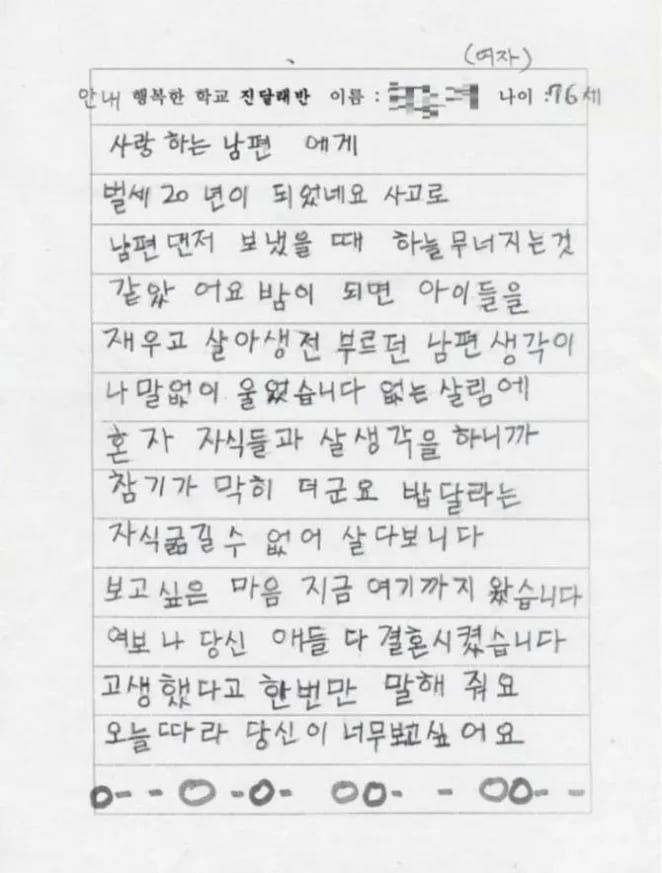 (여자)
안내 행복한 학교 진달래반 이름 : 나이 :76세
사랑 하는 남편 에게
벌세 20 년이 되었네요 사고로
남편 먼저 보냈을 때 하늘무너지는것
같았 어요 밤이 되면 아이들을
재우고 살아생전 부르던 남편 생각이
나 말없이 울었습니다 없는 살림에
혼자 자식들과 살생각을 하니까
참기가 막히 더군요 밥달라는
자식굶길수 없어 살다보니다
보고싶은 마음 지금 여기까지 왔습니다
여보 나 당신 애들 다 결혼시켰습니다
고생했다고 한번만 말해 줘요
오늘따라 당신이 너무보고싶어요